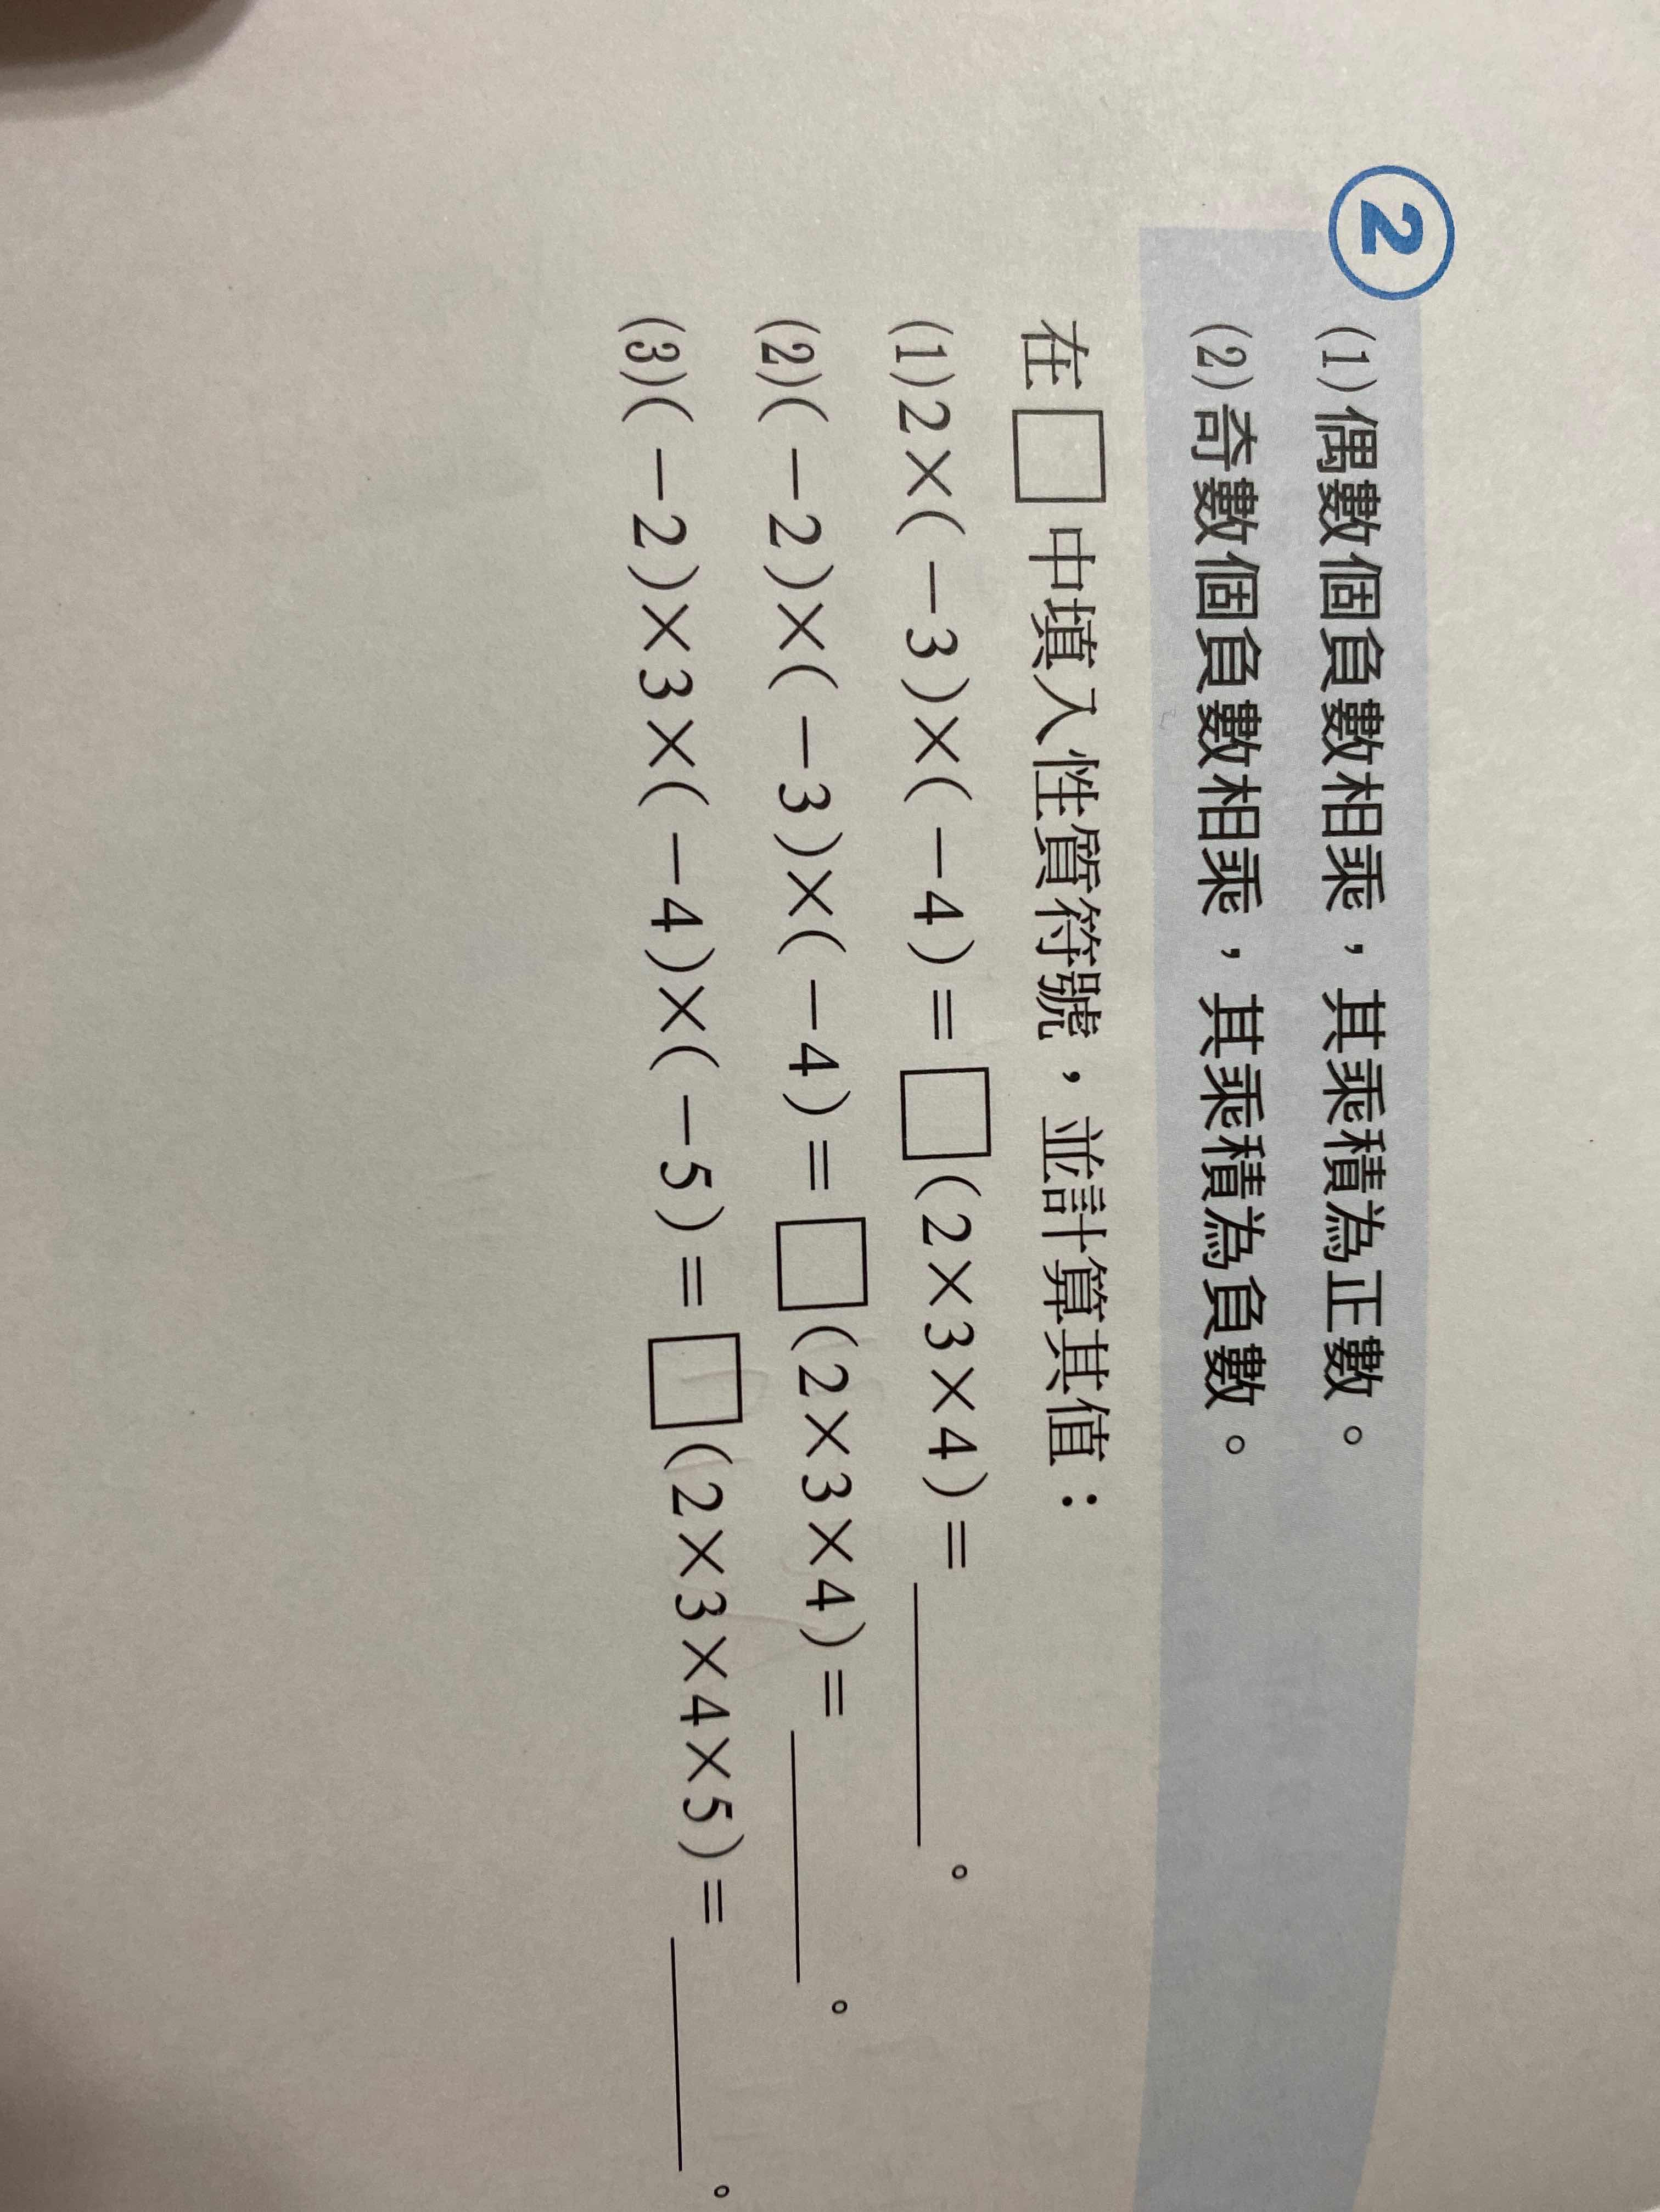 ②
(1)偶數個負數相乘，其乘積為正數。
(2)奇數個負數相乘，其乘積為負數。
在□中填入性質符號，並計算其值：
(1)2×(-3)×(-4)=□(2×3×4)=______。
(2)(-2)×(-3)×(-4)=□(2×3×4)=______。
(3)(-2)×3×(-4)×(-5)=□(2×3×4×5)=______。